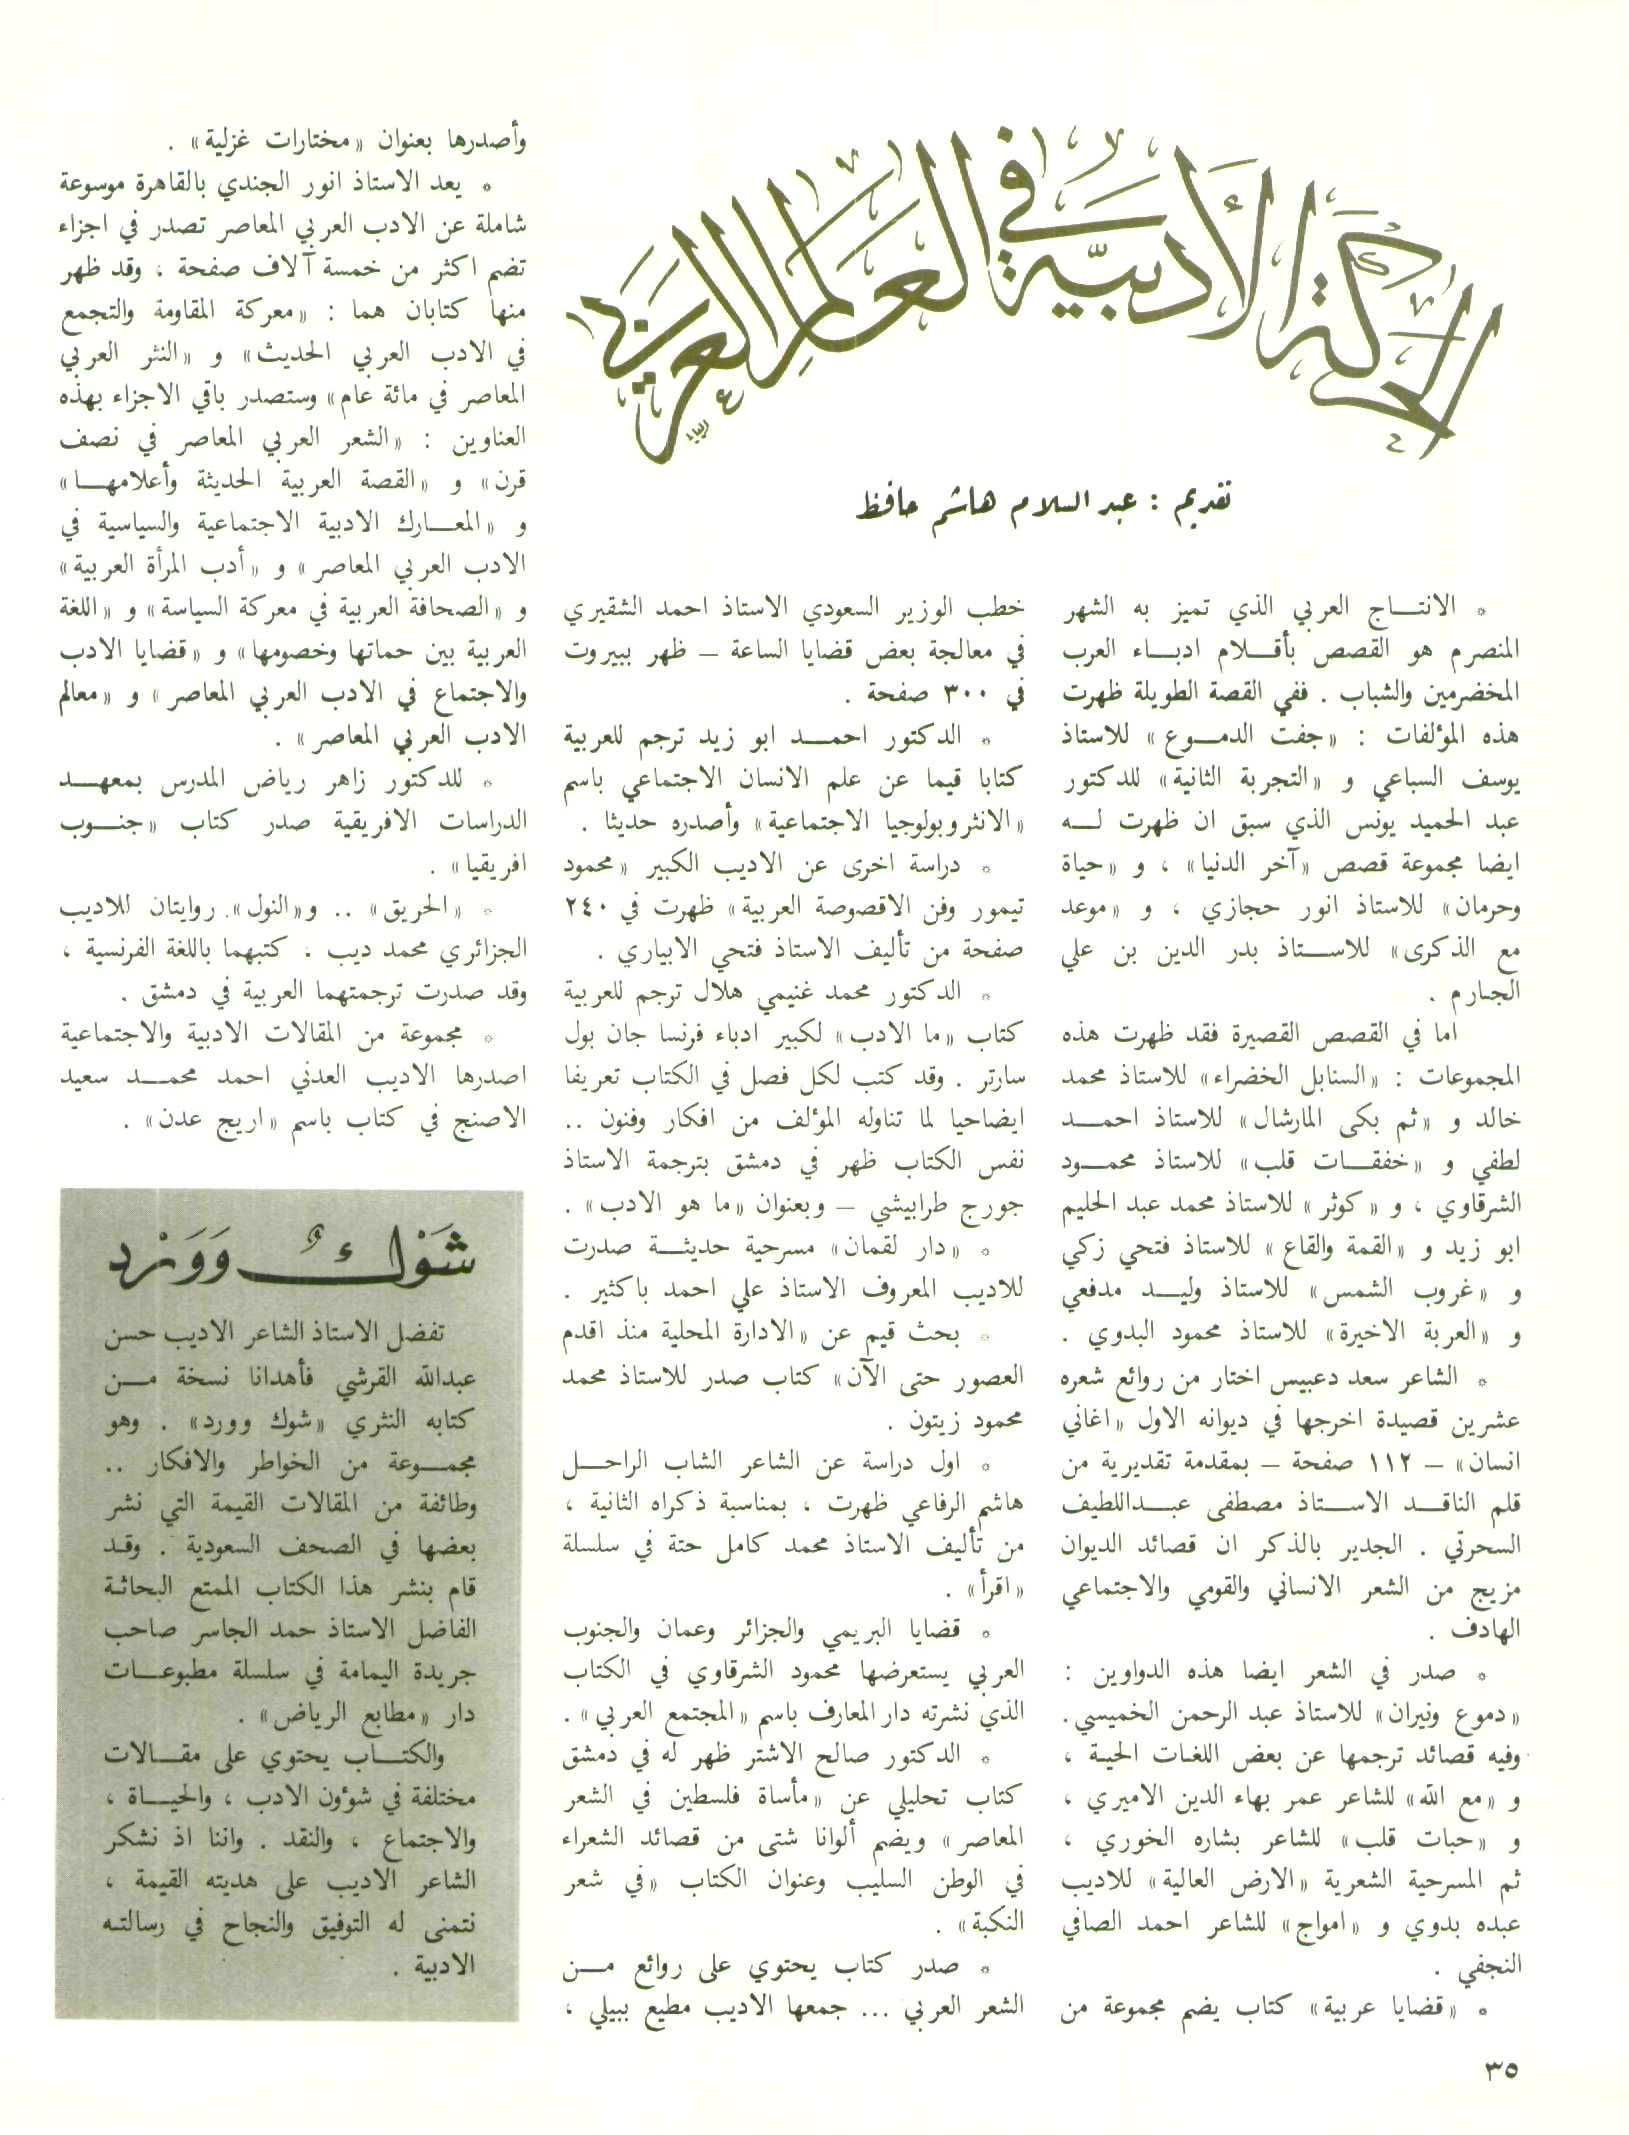 الحركة الأدبية في العالم العربي
تقديم : عبد السلام هاشم حافظ
* الانتـــاج العربي الذي تميز به الشهر
المنصرم هو القصص بأقـــلام ادبـــاء العرب
المخضرمين والشباب . ففي القصة الطويلة ظهرت
هذه المؤلفات : «جفت الدمــوع» للاستاذ
يوسف السباعي و «التجربة الثانية» للدكتور
عبد الحميد يونس الذي سبق ان ظهرت لـــه
ايضا مجموعة قصص «آخر الدنيا» ، و «حياة
وحرمان» للاستاذ انور حجازي ، و «موعد
مع الذكرى» للاســتاذ بدر الدين بن علي
الجارم .
اما في القصص القصيرة فقد ظهرت هذه
المجموعات : «السنابل الخضراء» للاستاذ محمد
خالد و «ثم بكى المارشال» للاستاذ احمــد
لطفي و «خفقــات قلب» للاستاذ محمــود
الشرقاوي ، و «كوثر» للاستاذ محمد عبد الحليم
ابو زيد و «القمة والقاع» للاستاذ فتحي زكي
و «غروب الشمس» للاستاذ وليــد مدفعي
و «العربة الاخيرة» للاستاذ محمود البدوي .
* الشاعر سعد دعبيس اختار من روائع شعره
عشرين قصيدة اخرجها في ديوانه الاول «اغاني
انسان» – ١١٢ صفحة – بمقدمة تقديرية من
قلم الناقــد الاســتاذ مصطفى عبــداللطيف
السحرتي . الجدير بالذكر ان قصائد الديوان
مزيج من الشعر الانساني والقومي والاجتماعي
الهادف .
* صدر في الشعر ايضا هذه الدواوين :
«دموع ونيران» للاستاذ عبد الرحمن الخميسي.
وفيه قصائد ترجمها عن بعض اللغات الحية ،
و «مع الله» للشاعر عمر بهاء الدين الاميري ،
و «حبات قلب» للشاعر بشاره الخوري ،
ثم المسرحية الشعرية «الارض العالية» للاديب
عبده بدوي و «امواج» للشاعر احمد الصافي
النجفي .
* «قضايا عربية» كتاب يضم مجموعة من
خطب الوزير السعودي الاستاذ احمد الشقيري
في معالجة بعض قضايا الساعة – ظهر ببيروت
في ٣٠٠ صفحة .
* الدكتور احمــد ابو زيد ترجم للعربية
كتابا قيما عن علم الانسان الاجتماعي باسم
«الانثروبولوجيا الاجتماعية» وأصدره حديثا .
* دراسة اخرى عن الاديب الكبير «محمود
تيمور وفن الاقصوصة العربية» ظهرت في ٢٤٠
صفحة من تأليف الاستاذ فتحي الابياري .
* الدكتور محمد غنيمي هلال ترجم للعربية
كتاب «ما الادب» لكبير ادباء فرنسا جان بول
سارتر . وقد كتب لكل فصل في الكتاب تعريفا
ايضاحيا لما تناوله المؤلف من افكار وفنون ..
نفس الكتاب ظهر في دمشق بترجمة الاستاذ
جورج طرابيشي – وبعنوان «ما هو الادب» .
* «دار لقمان» مسرحية حديثــة صدرت
للاديب المعروف الاستاذ علي احمد باكثير .
* بحث قيم عن «الادارة المحلية منذ اقدم
العصور حتى الآن» كتاب صدر للاستاذ محمد
محمود زيتون .
* اول دراسة عن الشاعر الشاب الراحــل
هاشم الرفاعي ظهرت ، بمناسبة ذكراه الثانية ،
من تأليف الاستاذ محمد كامل حتة في سلسلة
«اقرأ» .
* قضايا البريمي والجزائر وعمان والجنوب
العربي يستعرضها محمود الشرقاوي في الكتاب
الذي نشرته دار المعارف باسم «المجتمع العربي» .
* الدكتور صالح الاشتر ظهر له في دمشق
كتاب تحليلي عن «مأساة فلسطين في الشعر
المعاصر» ويضم ألوانا شتى من قصائد الشعراء
في الوطن السليب وعنوان الكتاب «في شعر
النكبة» .
* صدر كتاب يحتوي على روائع مــن
الشعر العربي ... جمعها الاديب مطيع ببيلي ،
وأصدرها بعنوان «مختارات غزلية» .
* يعد الاستاذ انور الجندي بالقاهرة موسوعة
شاملة عن الادب العربي المعاصر تصدر في اجزاء
تضم اكثر من خمسة آلاف صفحة ، وقد ظهر
منها كتابان هما : «معركة المقاومة والتجمع
في الادب العربي الحديث» و «النثر العربي
المعاصر في مائة عام» وستصدر باقي الاجزاء بهذه
العناوين : «الشعر العربي المعاصر في نصف
قرن» و «القصة العربية الحديثة وأعلامهــا»
و «المعــارك الادبية الاجتماعية والسياسية في
الادب العربي المعاصر» و «أدب المرأة العربية»
و «الصحافة العربية في معركة السياسة» و «اللغة
العربية بين حماتها وخصومها» و «قضايا الادب
والاجتماع في الادب العربي المعاصر» و «معالم
الادب العربي المعاصر» .
* للدكتور زاهر رياض المدرس بمعهــد
الدراسات الافريقية صدر كتاب «جنــوب
افريقيا» .
* «الحريق» .. و«النول». روايتان للاديب
الجزائري محمد ديب . كتبهما باللغة الفرنسية ،
وقد صدرت ترجمتهما العربية في دمشق .
* مجموعة من المقالات الادبية والاجتماعية
اصدرها الاديب العدني احمد محمــد سعيد
الاصنج في كتاب باسم «اريج عدن» .
شَوْكٌ وَوَرْد
تفضل الاستاذ الشاعر الاديب حسن
عبدالله القرشي فأهدانا نسخة مــن
كتابه النثري «شوك وورد» . وهو
مجمــوعة من الخواطر والافكار ..
وطائفة من المقالات القيمة التي نشر
بعضها في الصحف السعودية . وقد
قام بنشر هذا الكتاب الممتع البحاثة
الفاضل الاستاذ حمد الجاسر صاحب
جريدة اليمامة في سلسلة مطبوعــات
دار «مطابع الرياض» .
والكتــاب يحتوي على مقــالات
مختلفة في شؤون الادب ، والحيــاة ،
والاجتماع ، والنقد . واننا اذ نشكر
الشاعر الاديب على هديته القيمة ،
نتمنى له التوفيق والنجاح في رسالته
الادبية .
٣٥